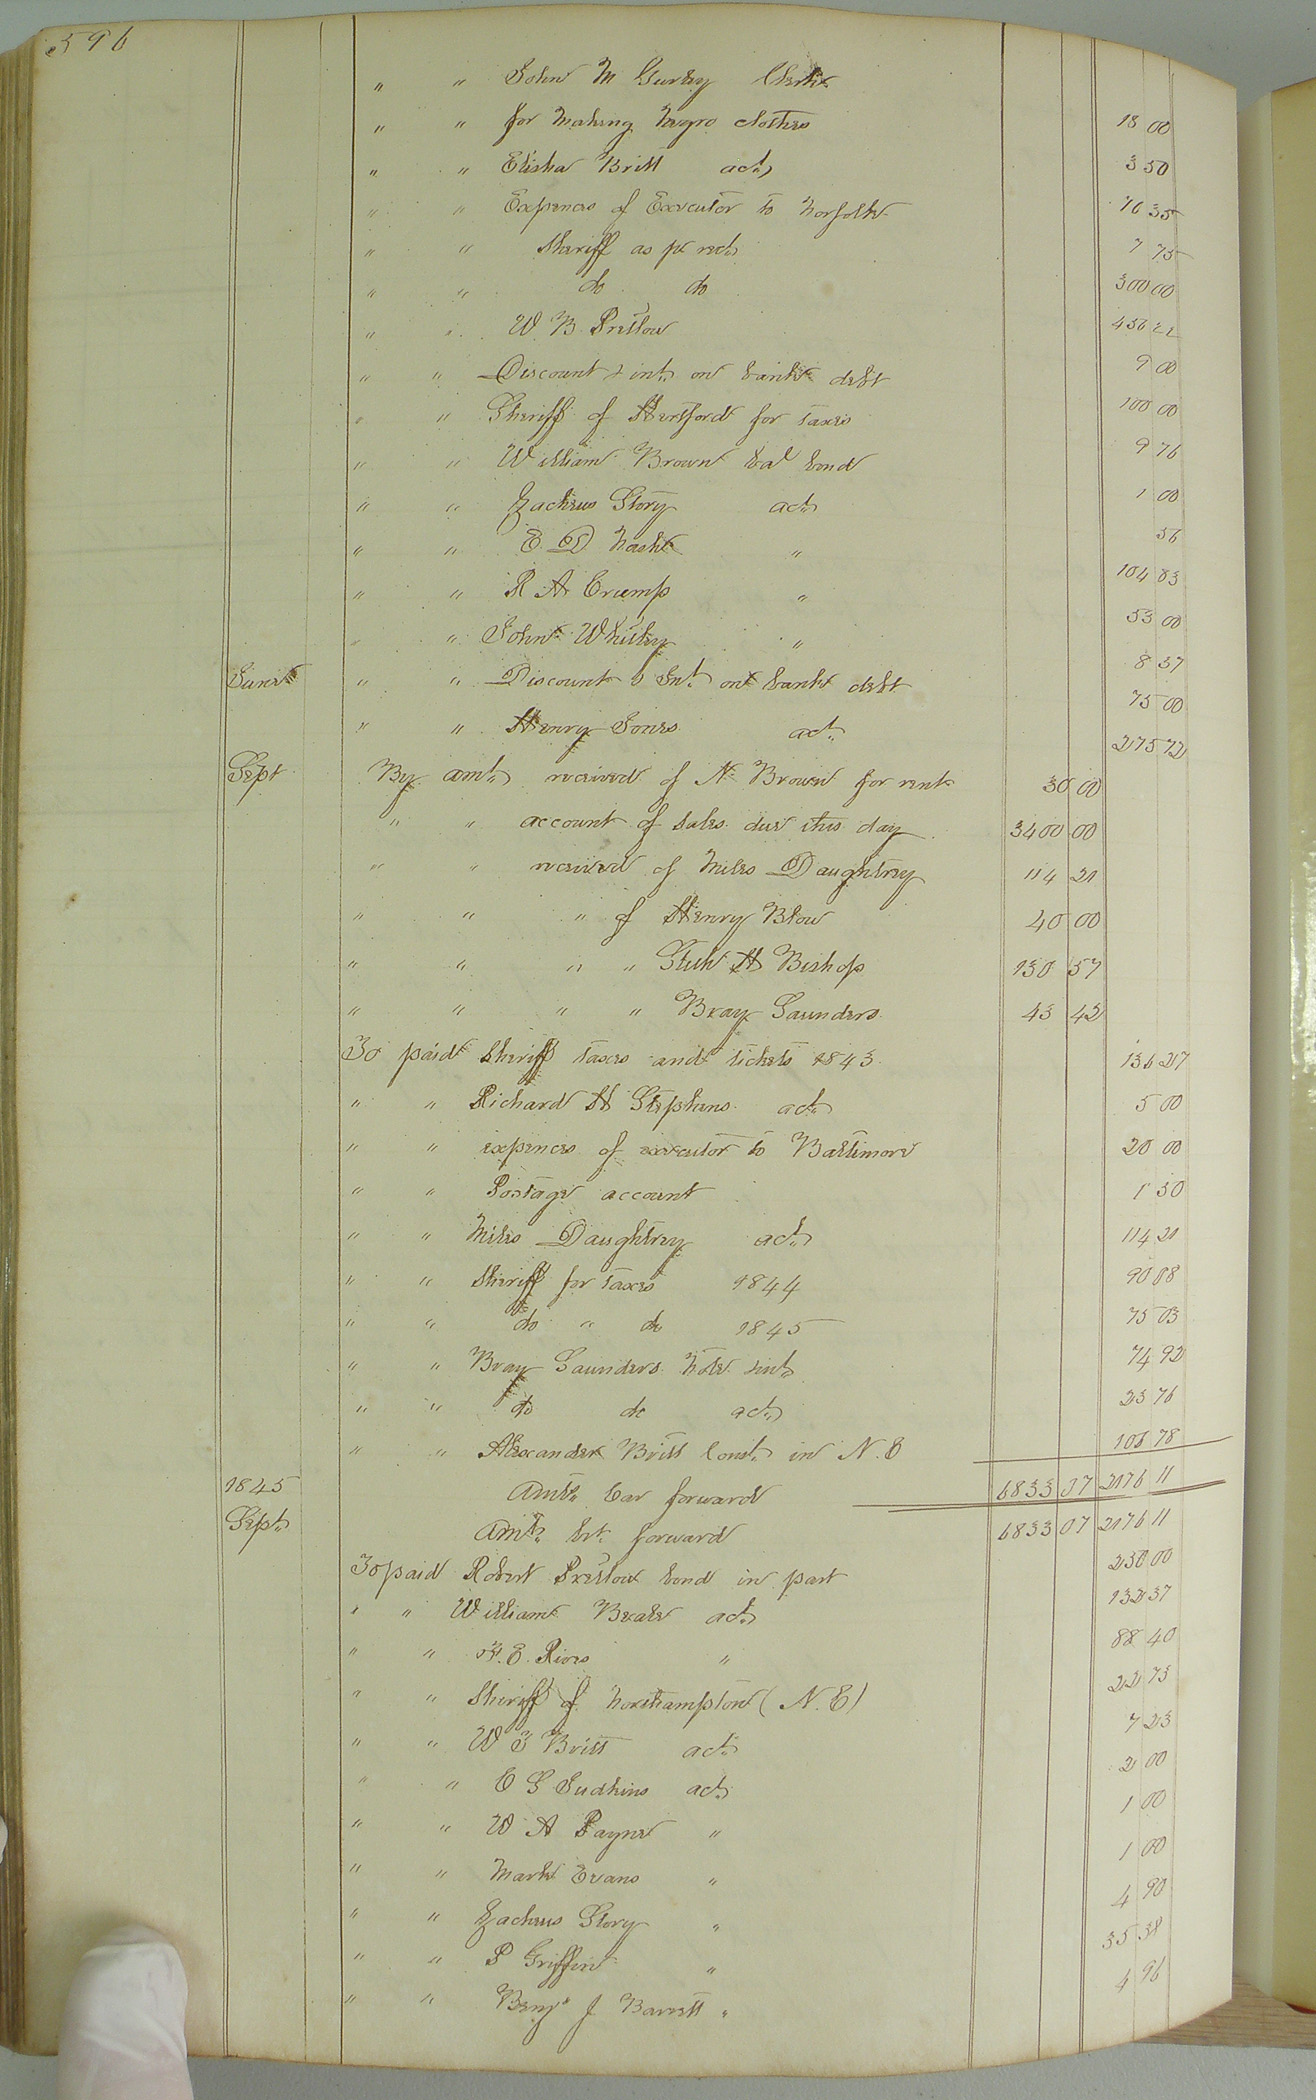 596
" " John M Gurley Clerk
" " for making Negro clothes 18 00
" " Elisha Britt act 3 50
" " Expences of Executor to Norfolk 16 35
" " Sheriff as pr rect 7 75
" " do do 300 00
" " W B Pretlow 456 22
" " Discount & int on bank debt 9 00
" " Sheriff of Hertford for taxes 100 00
" " William Brown bal bond 9 76
" " Zacheus Story act 1 00
" " E D Nash " 56
" " R A Crump " 104 83
" " John Whitley " 53 00
" " Discount & Int on bank debt 8 37
" " Henry Jones act 75 00
275 72
Sept By amt received of N Brown for rent 30 00
" " account of sales due this day 3400 00
" " received of Miles Daughtrey 114 21
" " " of Henry Blow 40 00
" " " " Bishop 130 57
" " " " Bray Saunders 43 42
To paid Sheriff taxes and tickets 1843 136 27
" " Richard H Stephens act 5 00
" " expences of executor to Baltimore 20 00
" " Postage account 1 50
" " Miles Daughtrey act 114 21
" " Sheriff for taxes 1844 90 08
" " do " do 1845 75 03
" " Bray Saunders Note & int 74 92
" " do do act 23 76
" " Alexander Britt Const in N.C 106 78
1845 Amt Car forward 6833 07 2176 11
Sept Amt brt forward 6833 07 2176 11
To paid Robert Pretlow bond in part 230 00
" " William Beale act 132 37
" " Rives " 88 40
" " Sheriff of Northampton (N.C) 22 75
" " W T Britt act 7 23
" " E S Judkins act 2 00
" " W A Payne " 1 00
" " Mark Evans " 1 00
" " Zacheus Story " 4 90
" " P Griffin " 35 38
" " Benj J Barrett " 4 96